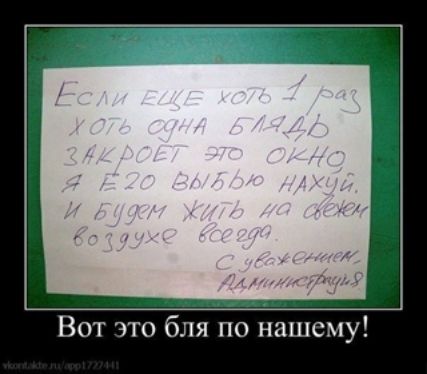 Если ещё хоть 1 раз
хоть одна БЛЯДЬ
ЗАКРОЕТ это ОКНО
Я Е2О ВЫБЬЮ НАХУЙ.
И будем жить на свежем
воздухе всегда.
С уважением,
Администрация
Вот это бля по нашему!
vkontakte.ru/app1727441